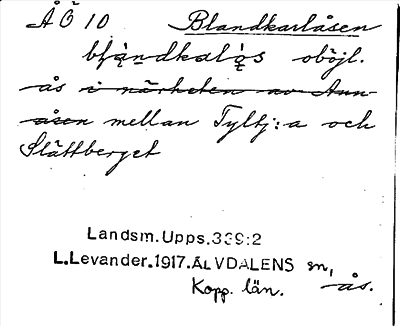 ÅÖ 10 Blandkarlåsen
oböjl.
ås i närheten av Aun-
åsen mellan Tyltj:a och
Slättberget
Landsm. Upps. 339:2
L. Levander. 1917. ÄLVDALENS sn,
Kopp. län. ås.